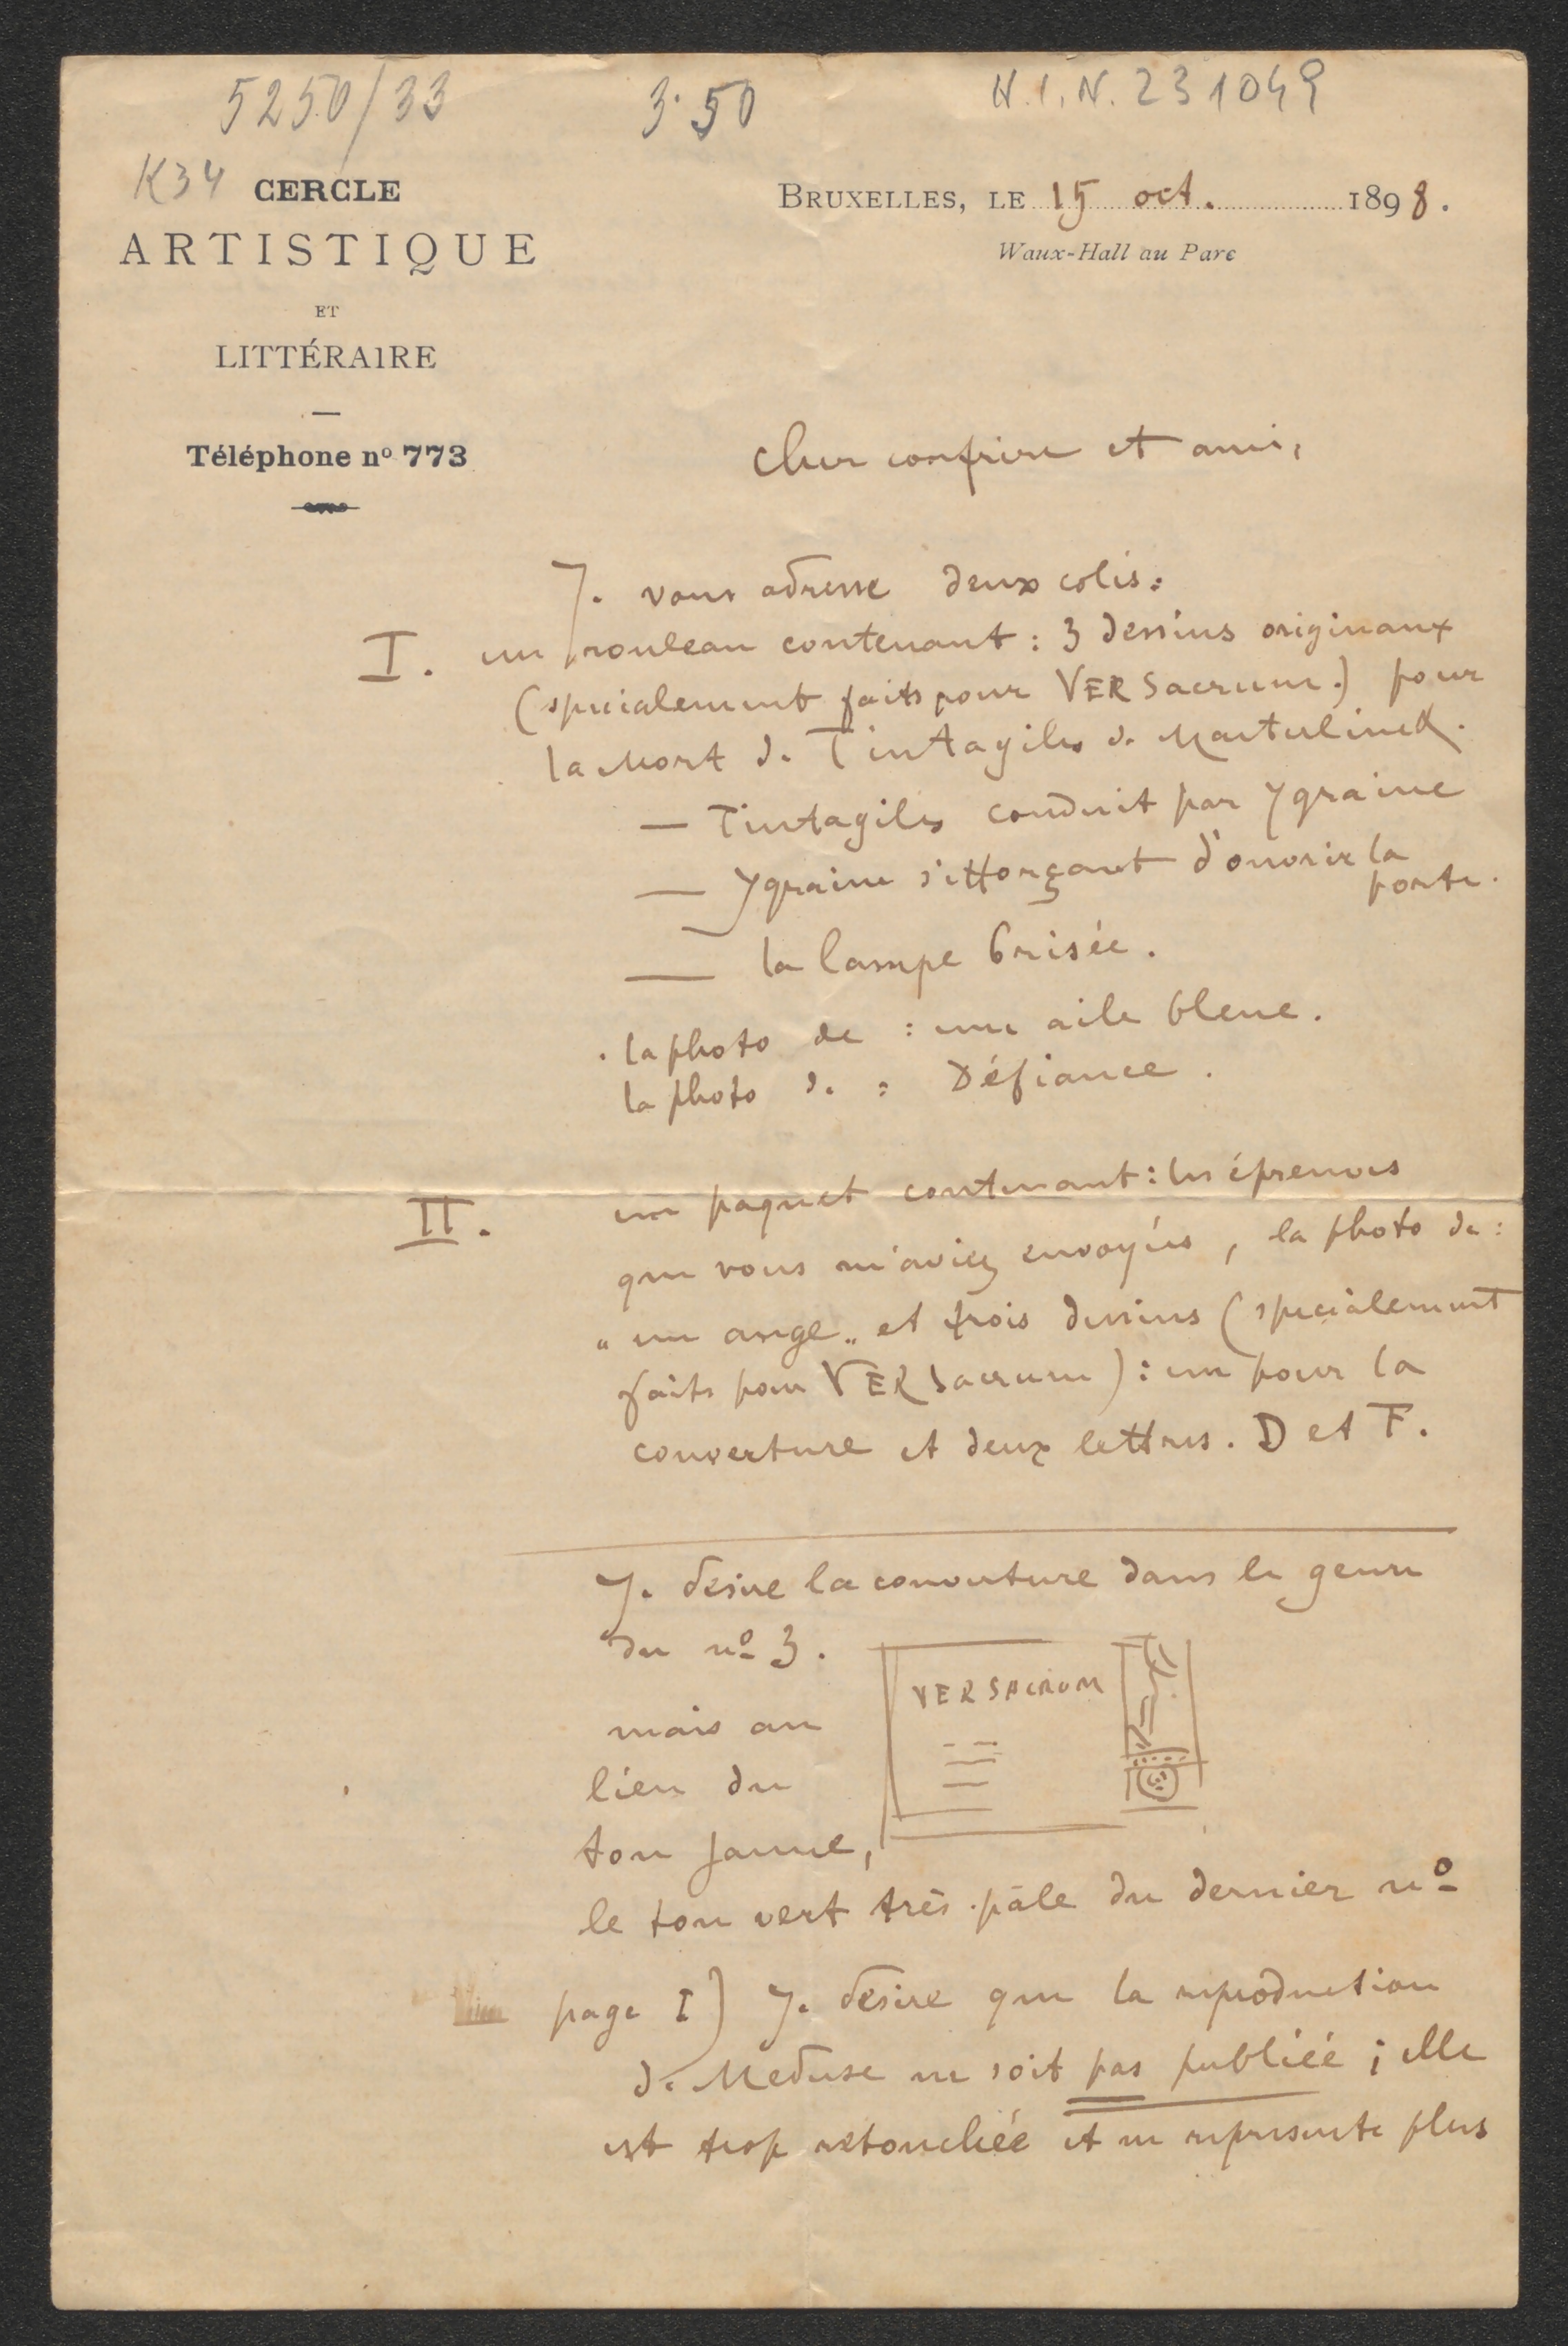 5250/33
3.50
H.I.N. 231049
K34
CERCLE
ARTISTIQUE
ET
LITTÉRAIRE
Téléphone nº 773
BRUXELLES, LE 15 oct. 1898.
Waux-Hall au Parc
Cher confrère et ami,
Je vous adresse deux colis:
I. un rouleau contenant: 3 dessins originaux
(specialement faits pour VER Sacrum.) pour
la Mort de Tintagiles de Maeterlinck.
— Tintagiles conduit par Ygraine
— Ygraine s'efforçant d'ouvrir la
porte.
— la lampe brisée.
. la photo de : une aile bleue.
la photo de : Défiance.
II. un paquet contenant: les épreuves
que vous m'aviez envoyées, la photo de:
"un ange" et trois dessins (specialement
faits pour VER Sacrum): un pour la
couverture et deux lettres. D et F.
Je desire la couverture dans le genre
du nº 3.
VER SACRUM
mais au
lieu du
ton jaune,
le ton vert très pâle du dernier nº
page I) Je desire que la reproduction
de Meduse ne soit pas publiée; elle
est trop retouchée et ne represente plus